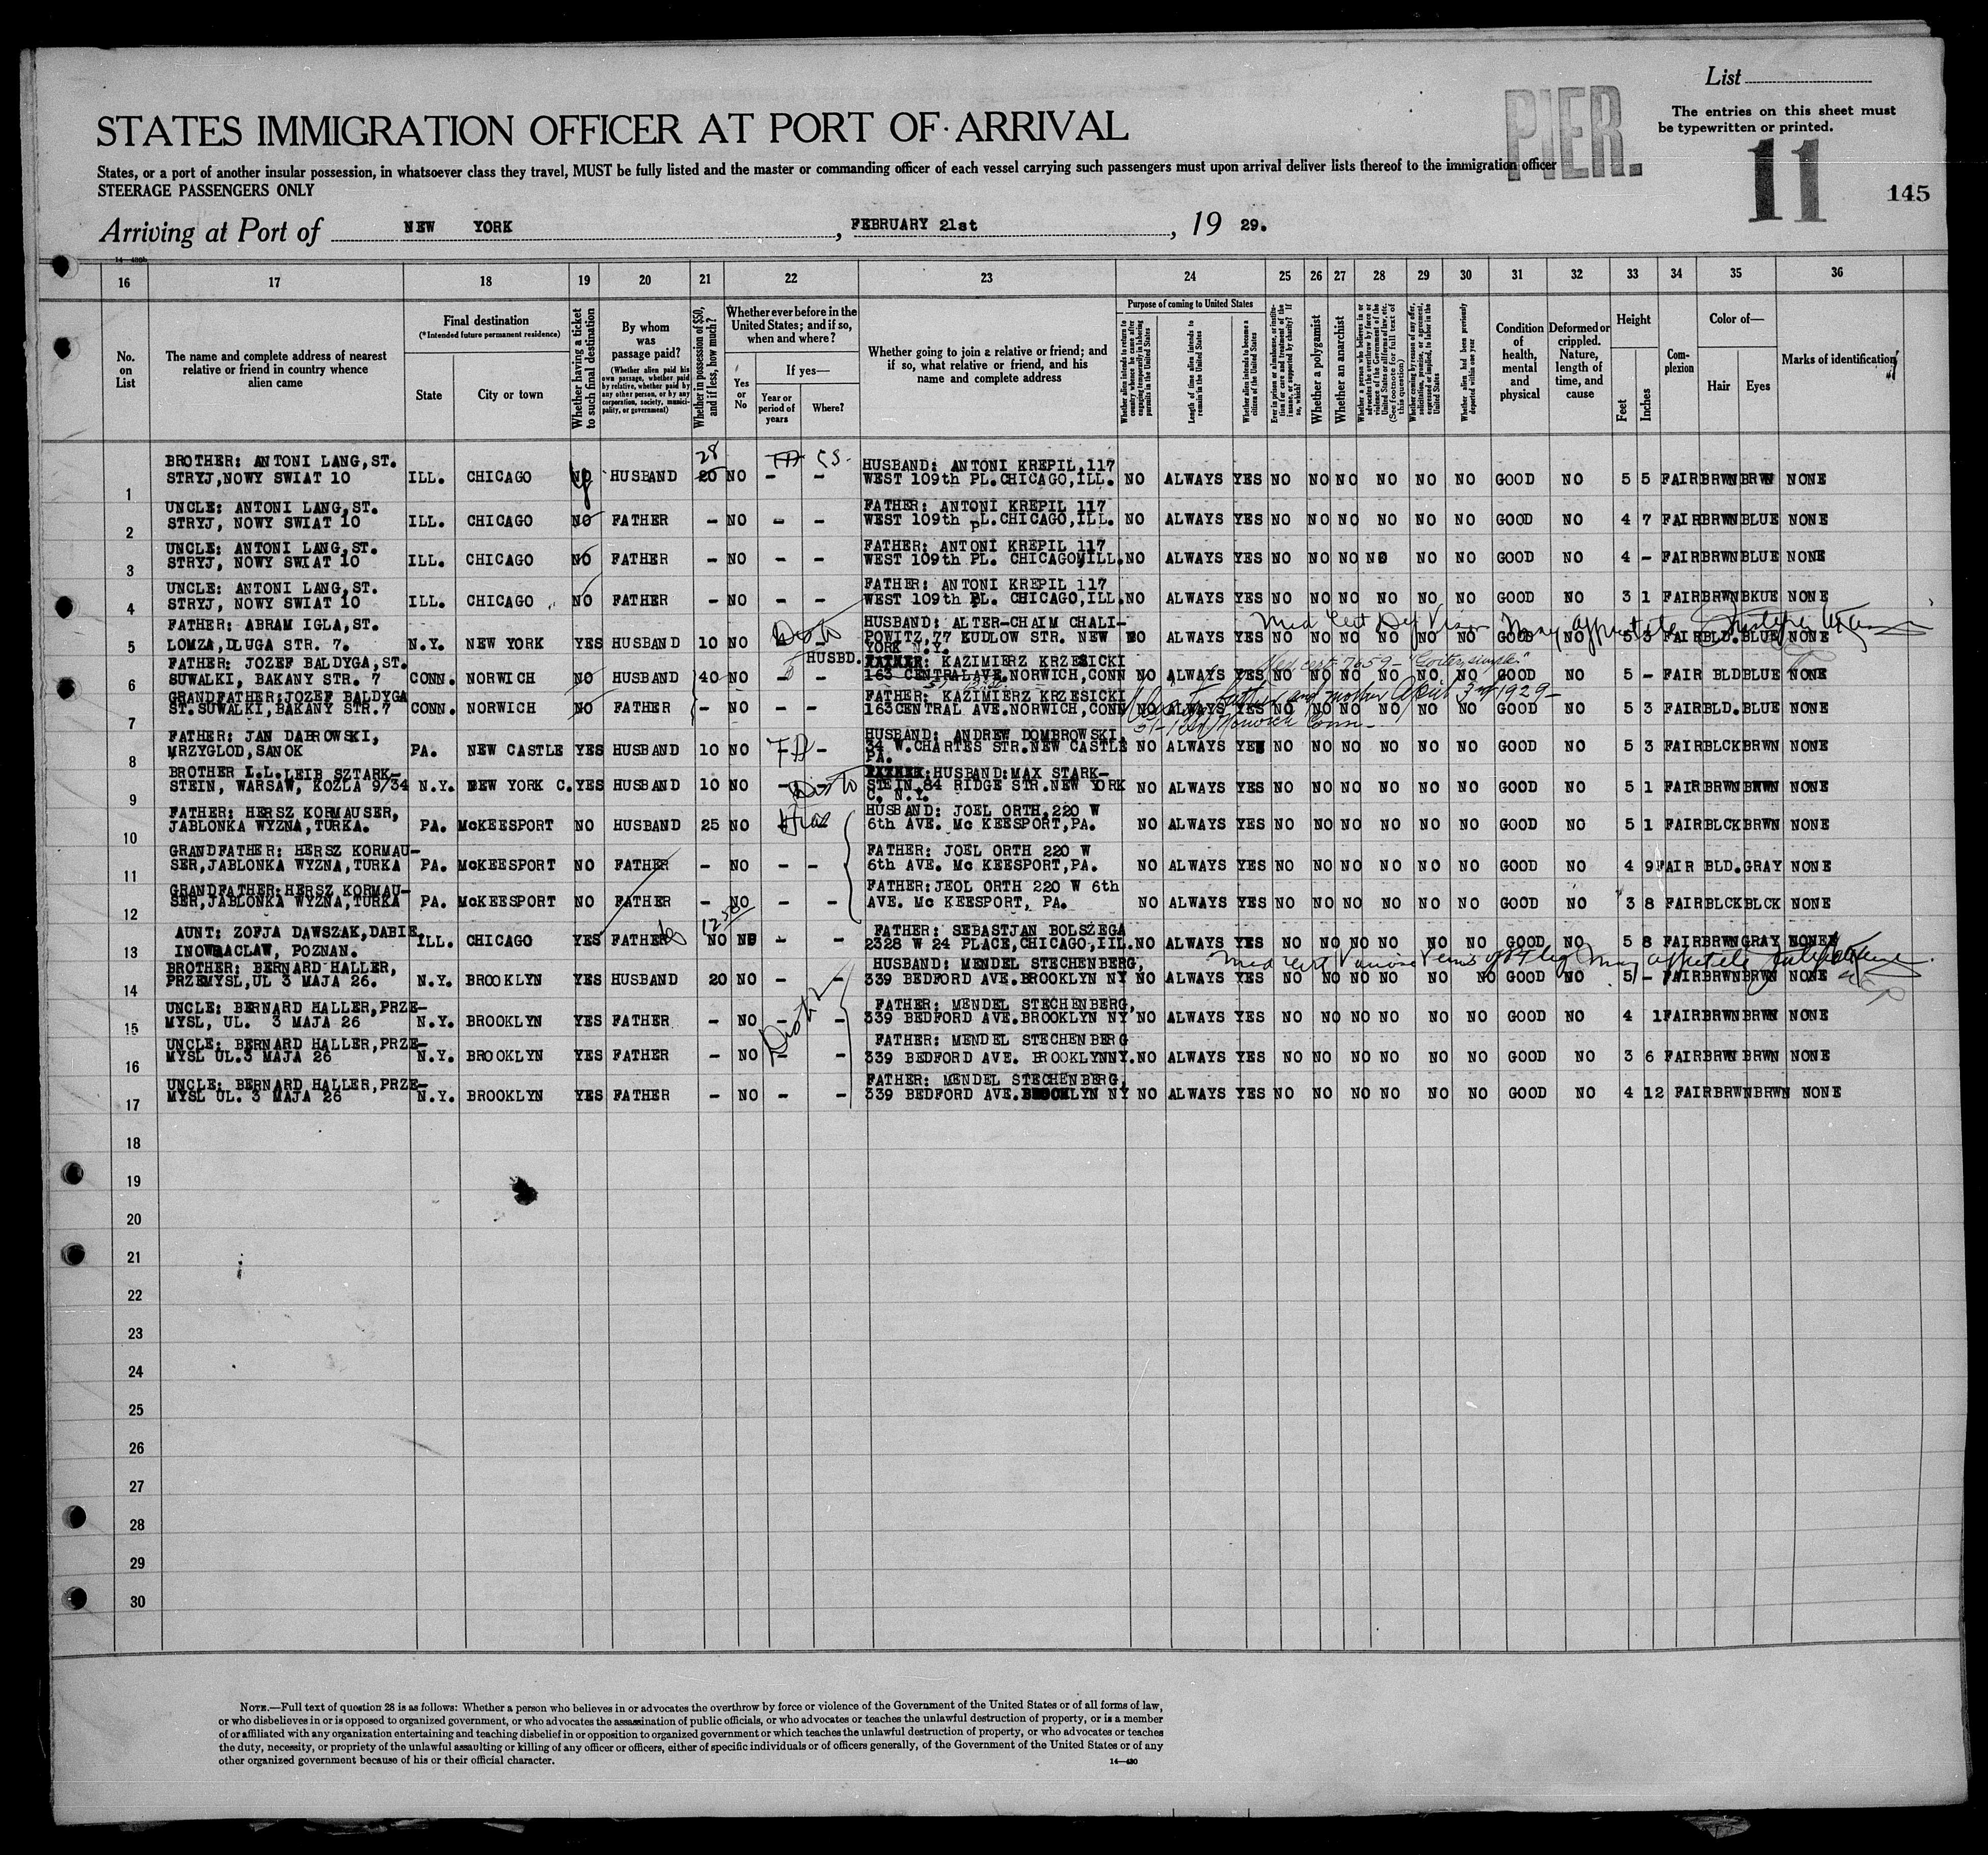 List
PIER.
The entries on this sheet must
be typewritten or printed.
STATES IMMIGRATION OFFICER AT PORT OF ARRIVAL
11
145
States, or a port of another insular possession, in whatsoever class they travel, MUST be fully listed and the master or commanding officer of each vessel carrying such passengers must upon arrival deliver lists thereof to the immigration officer
STEERAGE PASSENGERS ONLY
Arriving at Port of NEW YORK, FEBRUARY 21st, 19 29.
16 17 18 19 20 21 22 23 24 25 26 27 28 29 30 31 32 33 34 35 36
No. on List
The name and complete address of nearest relative or friend in country whence alien came
Final destination
(*Intended future permanent residence)
State
City or town
Whether having a ticket to such final destination
By whom was passage paid?
(Whether alien paid his own passage, whether paid by relative, whether paid by any other person, or by any corporation, society, municipality, or government)
Whether in possession of $50, and if less, how much?
Whether ever before in the United States; and if so, when and where?
Yes or No
If yes—
Year or period of years
Where?
Whether going to join a relative or friend; and if so, what relative or friend, and his name and complete address
Purpose of coming to United States
Whether alien intends to return to country whence he came after engaging temporarily in laboring pursuits in the United States
Length of time alien intends to remain in the United States
Whether alien intends to become a citizen of the United States
Ever in prison or almshouse, or institution for care and treatment of the insane, or supported by charity? If so, which?
Whether a polygamist
Whether an anarchist
Whether a person who believes in or advocates the overthrow by force or violence of the Government of the United States or all forms of law, etc. (See footnote for full text of this question)
Whether coming by reason of any offer, solicitation, promise, or agreement, expressed or implied, to labor in the United States
Whether alien had been previously deported within one year
Condition of health, mental and physical
Deformed or crippled. Nature, length of time, and cause
Height
Feet
Inches
Complexion
Color of—
Hair
Eyes
Marks of identification
1 BROTHER: ANTONI LANG, ST. STRYJ, NOWY SWIAT 10 ILL. CHICAGO NO HUSBAND 28 20 NO - - HUSBAND: ANTONI KREPIL, 117 WEST 109th PL. CHICAGO, ILL. NO ALWAYS YES NO NO NO NO NO NO GOOD NO 5 5 FAIR BRWN BRWN NONE
2 UNCLE: ANTONI LANG, ST. STRYJ, NOWY SWIAT 10 ILL. CHICAGO NO FATHER - NO - - FATHER: ANTONI KREPIL 117 WEST 109th pL. CHICAGO, ILL. NO ALWAYS YES NO NO NO NO NO NO GOOD NO 4 7 FAIR BRWN BLUE NONE
3 UNCLE: ANTONI LANG, ST. STRYJ, NOWY SWIAT 10 ILL. CHICAGO NO FATHER - NO - - FATHER: ANTONI KREPIL 117 WEST 109th PL. CHICAGO, ILL. NO ALWAYS YES NO NO NO NO NO NO GOOD NO 4 - FAIR BRWN BLUE NONE
4 UNCLE: ANTONI LANG, ST. STRYJ, NOWY SWIAT 10 ILL. CHICAGO NO FATHER - NO - - FATHER: ANTONI KREPIL 117 WEST 109th PL. CHICAGO, ILL. NO ALWAYS YES NO NO NO NO NO NO GOOD NO 3 1 FAIR BRWN BKUE NONE
5 FATHER: ABRAM IGLA, ST. LOMZA, DLUGA STR. 7. N.Y. NEW YORK YES HUSBAND 10 NO - - HUSBAND: ALTER-CHAIM CHALIPOWITZ, 77 KUDLOW STR. NEW YORK N.Y. NO ALWAYS YES NO NO NO NO NO NO GOOD NO 5 3 FAIR BLD. BLUE NONE
Med Cert Def Vision May affect
6 FATHER: JOZEF BALDYGA, ST. SUWALKI, BAKANY STR. 7 CONN. NORWICH NO HUSBAND 40 NO - - HUSBD. KAZIMIERZ KRZESICKI 163 CENTRAL AVE. NORWICH, CONN NO ALWAYS YES NO NO NO NO NO NO GOOD NO 5 - FAIR BLD BLUE NONE
Med cert. 7659 - "Goiter, simple"
7 GRANDFATHER: JOZEF BALDYGA ST. SUWALKI, BAKANY STR. 7 CONN. NORWICH NO FATHER - NO - - FATHER: KAZIMIERZ KRZESICKI 163 CENTRAL AVE. NORWICH, CONN NO ALWAYS YES NO NO NO NO NO NO GOOD NO 5 3 FAIR BLD. BLUE NONE
father and mother April 3rd 1929 -
Norwich Conn -
8 FATHER: JAN DABROWSKI, MRZYGLOD, SANOK PA. NEW CASTLE YES HUSBAND 10 NO - HUSBAND: ANDREW DOMBROWSKI, 34 W. CHARTES STR. NEW CASTLE PA. NO ALWAYS YES NO NO NO NO NO NO GOOD NO 5 3 FAIR BLCK BRWN NONE
9 BROTHER L.L. LEIB SZTARKSTEIN, WARSAW, KOZLA 9/34 N.Y. NEW YORK C. YES HUSBAND 10 NO - - HUSBAND: MAX STARKSTEIN, 84 RIDGE STR. NEW YORK C. N.Y. NO ALWAYS YES NO NO NO NO NO NO GOOD NO 5 1 FAIR BRWN BRWN NONE
10 FATHER: HERSZ KORMAUSER, JABLONKA WYZNA, TURKA. PA. McKEESPORT NO HUSBAND 25 NO - - HUSBAND: JOEL ORTH, 220 W 6th AVE. Mc KEESPORT, PA. NO ALWAYS YES NO NO NO NO NO NO GOOD NO 5 1 FAIR BLCK BRWN NONE
11 GRANDFATHER: HERSZ KORMAUSER, JABLONKA WYZNA, TURKA PA. McKEESPORT NO FATHER - NO - - FATHER: JOEL ORTH 220 W 6th AVE. Mc KEESPORT, PA. NO ALWAYS YES NO NO NO NO NO NO GOOD NO 4 9 FAIR BLD. GRAY NONE
12 GRANDFATHER: HERSZ KORMAUSER, JABLONKA WYZNA, TURKA PA. McKEESPORT NO FATHER - NO - - FATHER: JEOL ORTH 220 W 6th AVE. Mc KEESPORT, PA. NO ALWAYS YES NO NO NO NO NO NO GOOD NO 3 8 FAIR BLCK BLCK NONE
13 AUNT: ZOFJA DAWSZAK, DABIE, INOWRACLAW, POZNAN. ILL. CHICAGO YES FATHER NO NO - - FATHER: SEBASTJAN BOLSZEGA 2328 W 24 PLACE, CHICAGO, IIL. NO ALWAYS YES NO NO NO NO NO NO GOOD NO 5 8 FAIR BRWN GRAY NONE
14 BROTHER: BERNARD HALLER, PRZEMYSL, UL 3 MAJA 26. N.Y. BROOKLYN YES HUSBAND 20 NO - - HUSBAND: MENDEL STECHENBERG, 339 BEDFORD AVE. BROOKLYN NY NO ALWAYS YES NO NO NO NO NO NO GOOD NO 5 - FAIR BRWN BRWN NONE
Med cert Varicose Veins of leg May affect
15 UNCLE: BERNARD HALLER, PRZEMYSL, UL. 3 MAJA 26 N.Y. BROOKLYN YES FATHER - NO - - FATHER: MENDEL STECHENBERG, 339 BEDFORD AVE. BROOKLYN NY NO ALWAYS YES NO NO NO NO NO NO GOOD NO 4 1 FAIR BRWN BRWN NONE
16 UNCLE: BERNARD HALLER, PRZEMYSL UL. 3 MAJA 26 N.Y. BROOKLYN YES FATHER - NO - - FATHER: MENDEL STECHENBERG 339 BEDFORD AVE. BROOKLYN NY. NO ALWAYS YES NO NO NO NO NO NO GOOD NO 3 6 FAIR BRWN BRWN NONE
17 UNCLE: BERNARD HALLER, PRZEMYSL UL. 3 MAJA 26 N.Y. BROOKLYN YES FATHER - NO - - FATHER: MENDEL STECHENBERG, 339 BEDFORD AVE. BROOKLYN NY NO ALWAYS YES NO NO NO NO NO NO GOOD NO 4 12 FAIR BRWN BRWN NONE
18
19
20
21
22
23
24
25
26
27
28
29
30
NOTE.—Full text of question 28 is as follows: Whether a person who believes in or advocates the overthrow by force or violence of the Government of the United States or of all forms of law,
or who disbelieves in or is opposed to organized government, or who advocates the assassination of public officials, or who advocates or teaches the unlawful destruction of property, or is a member
of or affiliated with any organization entertaining and teaching disbelief in or opposition to organized government or which teaches the unlawful destruction of property, or who advocates or teaches
the duty, necessity, or propriety of the unlawful assaulting or killing of any officer or officers, either of specific individuals or of officers generally, of the Government of the United States or of any
other organized government because of his or their official character.
14—430